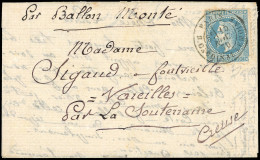 Par Ballon Monté
Madame
Sigaud fontvieille
Vareilles
Par La Souteraine
Creuse